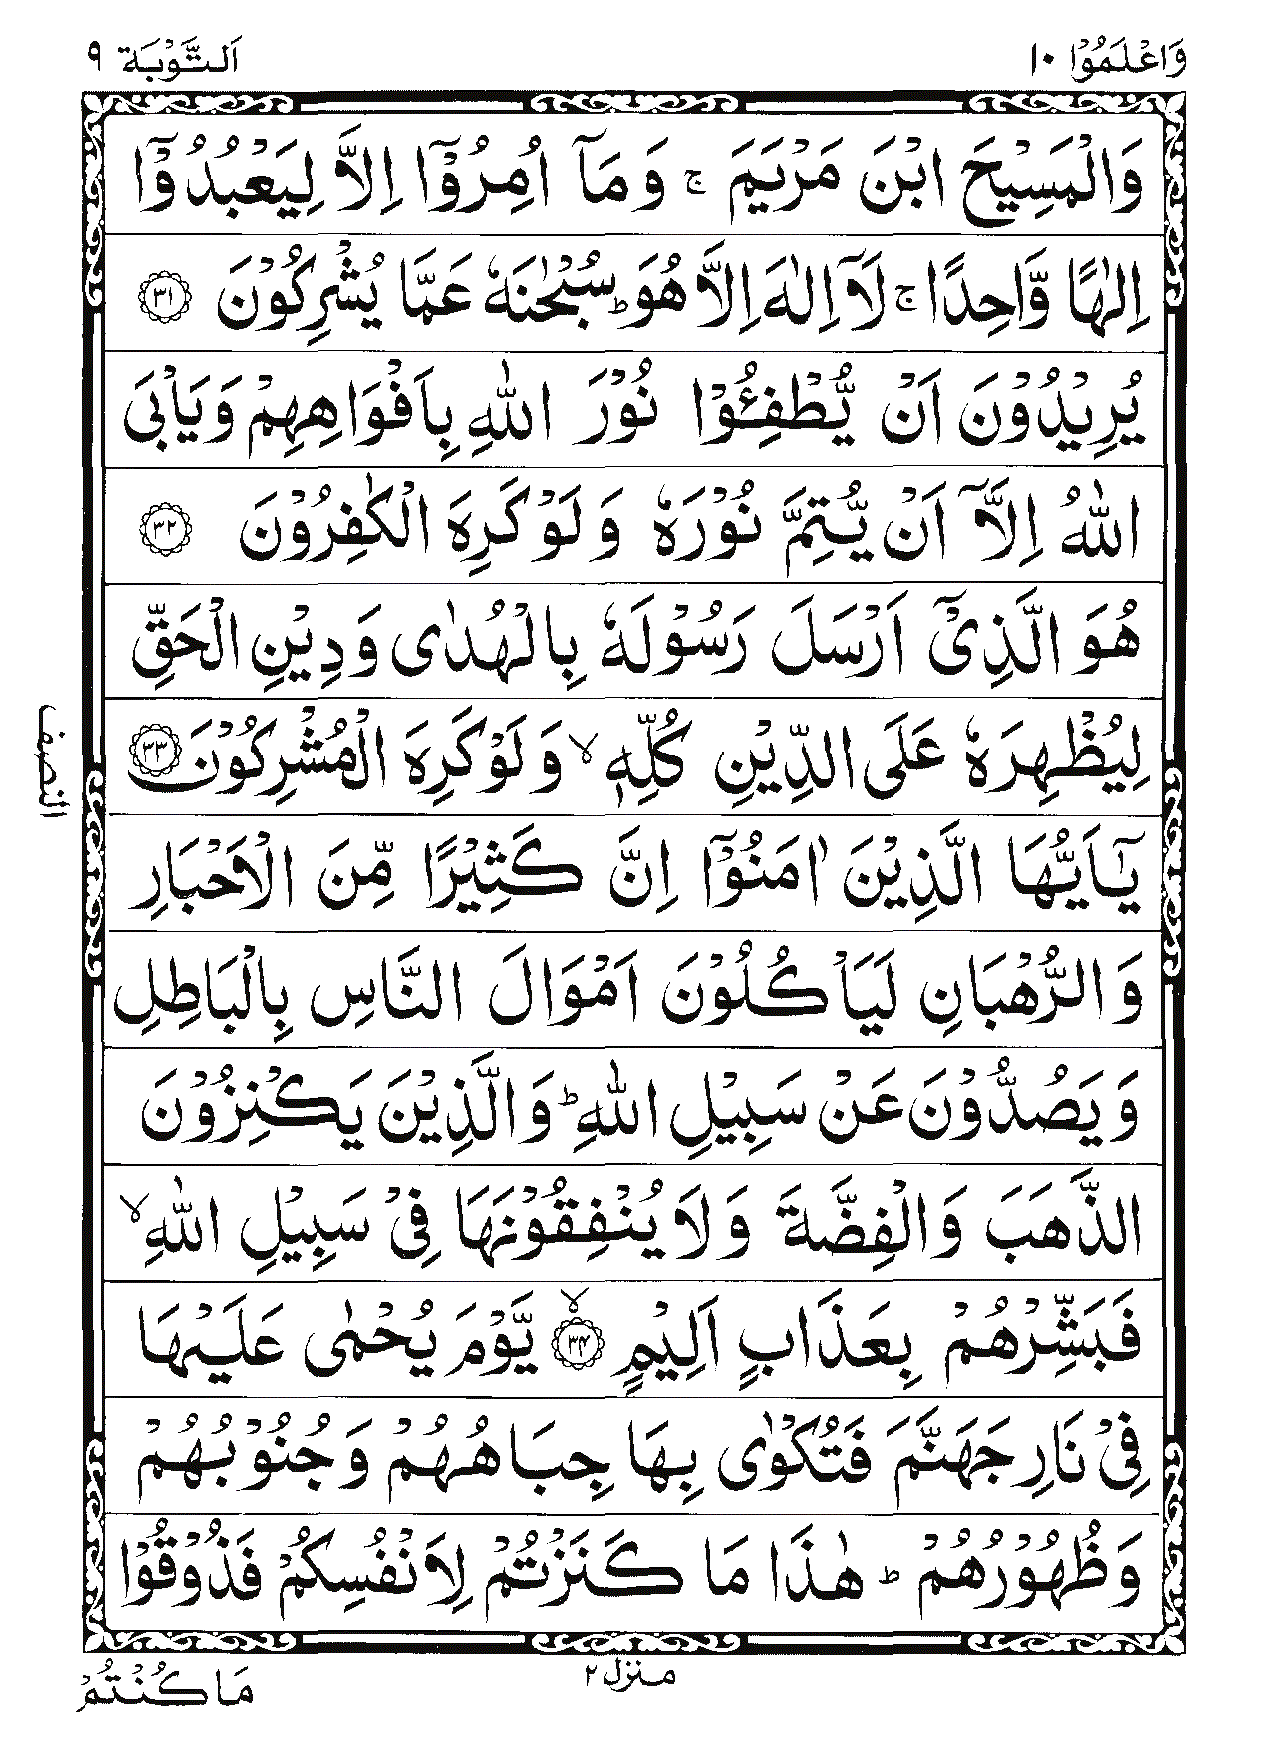 وَاعْلَمُوْا ۱۰ اَلتَّوْبَة ۹
وَالْمَسِيْحَ ابْنَ مَرْيَمَ ۚ وَمَاۤ اُمِرُوْۤا اِلَّا لِيَعْبُدُوْۤا
اِلٰهًا وَّاحِدًا ۚ لَاۤ اِلٰهَ اِلَّا هُوَ ؕ سُبْحٰنَهٗ عَمَّا يُشْرِكُوْنَ ﴿۳۱﴾
يُرِيْدُوْنَ اَنْ يُّطْفِـُٔوْا نُوْرَ اللّٰهِ بِاَفْوَاهِهِمْ وَيَاْبَى
اللّٰهُ اِلَّاۤ اَنْ يُّتِمَّ نُوْرَهٗ وَلَوْ كَرِهَ الْكٰفِرُوْنَ ﴿۳۲﴾
هُوَ الَّذِىْۤ اَرْسَلَ رَسُوْلَهٗ بِالْهُدٰى وَدِيْنِ الْحَقِّ
لِيُظْهِرَهٗ عَلَى الدِّيْنِ كُلِّهٖ ۙ وَلَوْ كَرِهَ الْمُشْرِكُوْنَ ﴿۳۳﴾
النصف
يٰۤاَيُّهَا الَّذِيْنَ اٰمَنُوْۤا اِنَّ كَثِيْرًا مِّنَ الْاَحْبَارِ
وَالرُّهْبَانِ لَيَاْكُلُوْنَ اَمْوَالَ النَّاسِ بِالْبَاطِلِ
وَيَصُدُّوْنَ عَنْ سَبِيْلِ اللّٰهِ ؕ وَالَّذِيْنَ يَكْنِزُوْنَ
الذَّهَبَ وَالْفِضَّةَ وَلَا يُنْفِقُوْنَهَا فِىْ سَبِيْلِ اللّٰهِ ۙ
فَبَشِّرْهُمْ بِعَذَابٍ اَلِيْمٍ ﴿۳۴﴾ ۙ يَّوْمَ يُحْمٰى عَلَيْهَا
فِىْ نَارِ جَهَنَّمَ فَتُكْوٰى بِهَا جِبَاهُهُمْ وَجُنُوْبُهُمْ
وَظُهُوْرُهُمْ ؕ هٰذَا مَا كَنَزْتُمْ لِاَنْفُسِكُمْ فَذُوْقُوْا
منزل ۲
مَا كُنْتُمْ